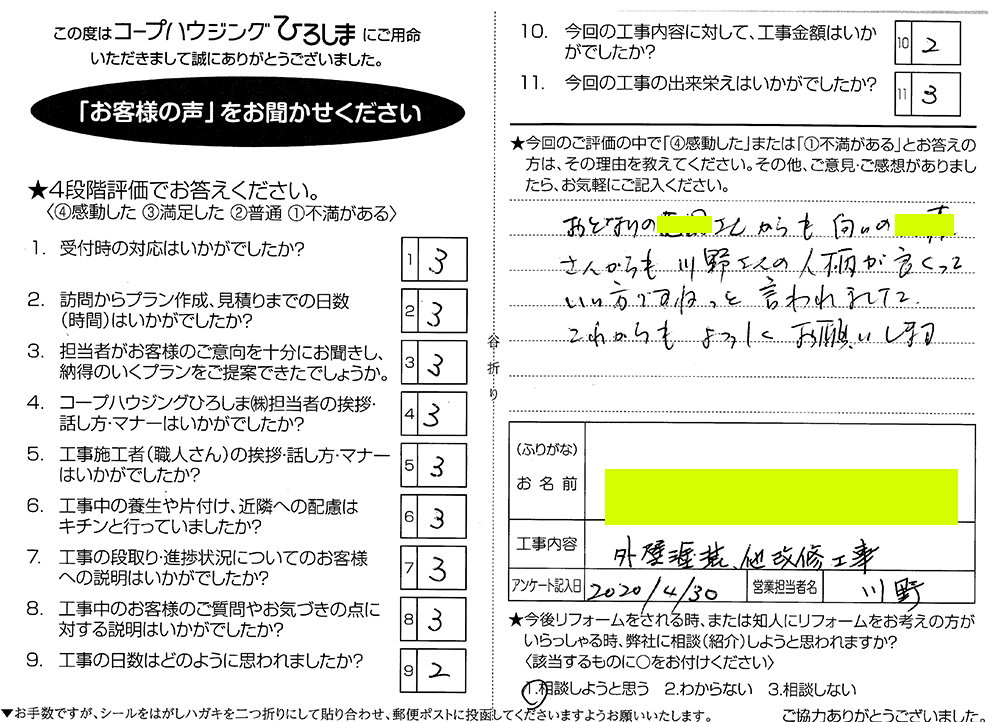 この度はコープハウジングひろしまにご用命
いただきまして誠にありがとうございました。
「お客様の声」をお聞かせください
★4段階評価でお答えください。
〈④感動した ③満足した ②普通 ①不満がある〉
1. 受付時の対応はいかがでしたか?
1 3
2. 訪問からプラン作成、見積りまでの日数
(時間)はいかがでしたか?
2 3
3. 担当者がお客様のご意向を十分にお聞きし、
納得のいくプランをご提案できたでしょうか。
3 3
4. コープハウジングひろしま㈱担当者の挨拶・
話し方・マナーはいかがでしたか?
4 3
5. 工事施工者(職人さん)の挨拶・話し方・マナー
はいかがでしたか?
5 3
6. 工事中の養生や片付け、近隣への配慮は
キチンと行っていましたか?
6 3
7. 工事の段取り・進捗状況についてのお客様
への説明はいかがでしたか?
7 3
8. 工事中のお客様のご質問やお気づきの点に
対する説明はいかがでしたか?
8 3
9. 工事の日数はどのように思われましたか?
9 2
▼お手数ですが、シールをはがしハガキを二つ折りにして貼り合わせ、郵便ポストに投函してくださいますようお願いいたします。
谷折り
10. 今回の工事内容に対して、工事金額はいか
がでしたか?
10 2
11. 今回の工事の出来栄えはいかがでしたか?
11 3
★今回のご評価の中で「④感動した」または「①不満がある」とお答えの
方は、その理由を教えてください。その他、ご意見・ご感想がありまし
たら、お気軽にご記入ください。
おとなりの さんからも 向いの
さんからも 川野さんの人柄が良くって
いい方ですねっと言われました。
これからもよろしくお願いします
(ふりがな)
お名前
工事内容 外壁塗装、他改修工事
アンケート記入日 2020/4/30 営業担当者名 川野
★今後リフォームをされる時、または知人にリフォームをお考えの方が
いらっしゃる時、弊社に相談(紹介)しようと思われますか?
〈該当するものに○をお付けください〉
1.相談しようと思う 2.わからない 3.相談しない
ご協力ありがとうございました。